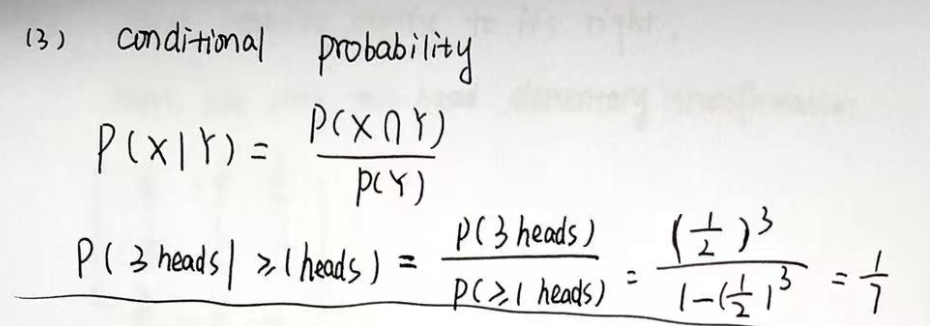 (3) conditional probability
P(X|Y) = P(X∩Y) / P(Y)
P(3 heads | ≥1 heads) = P(3 heads) / P(≥1 heads) = (1/2)^3 / 1-(1/2)^3 = 1/7